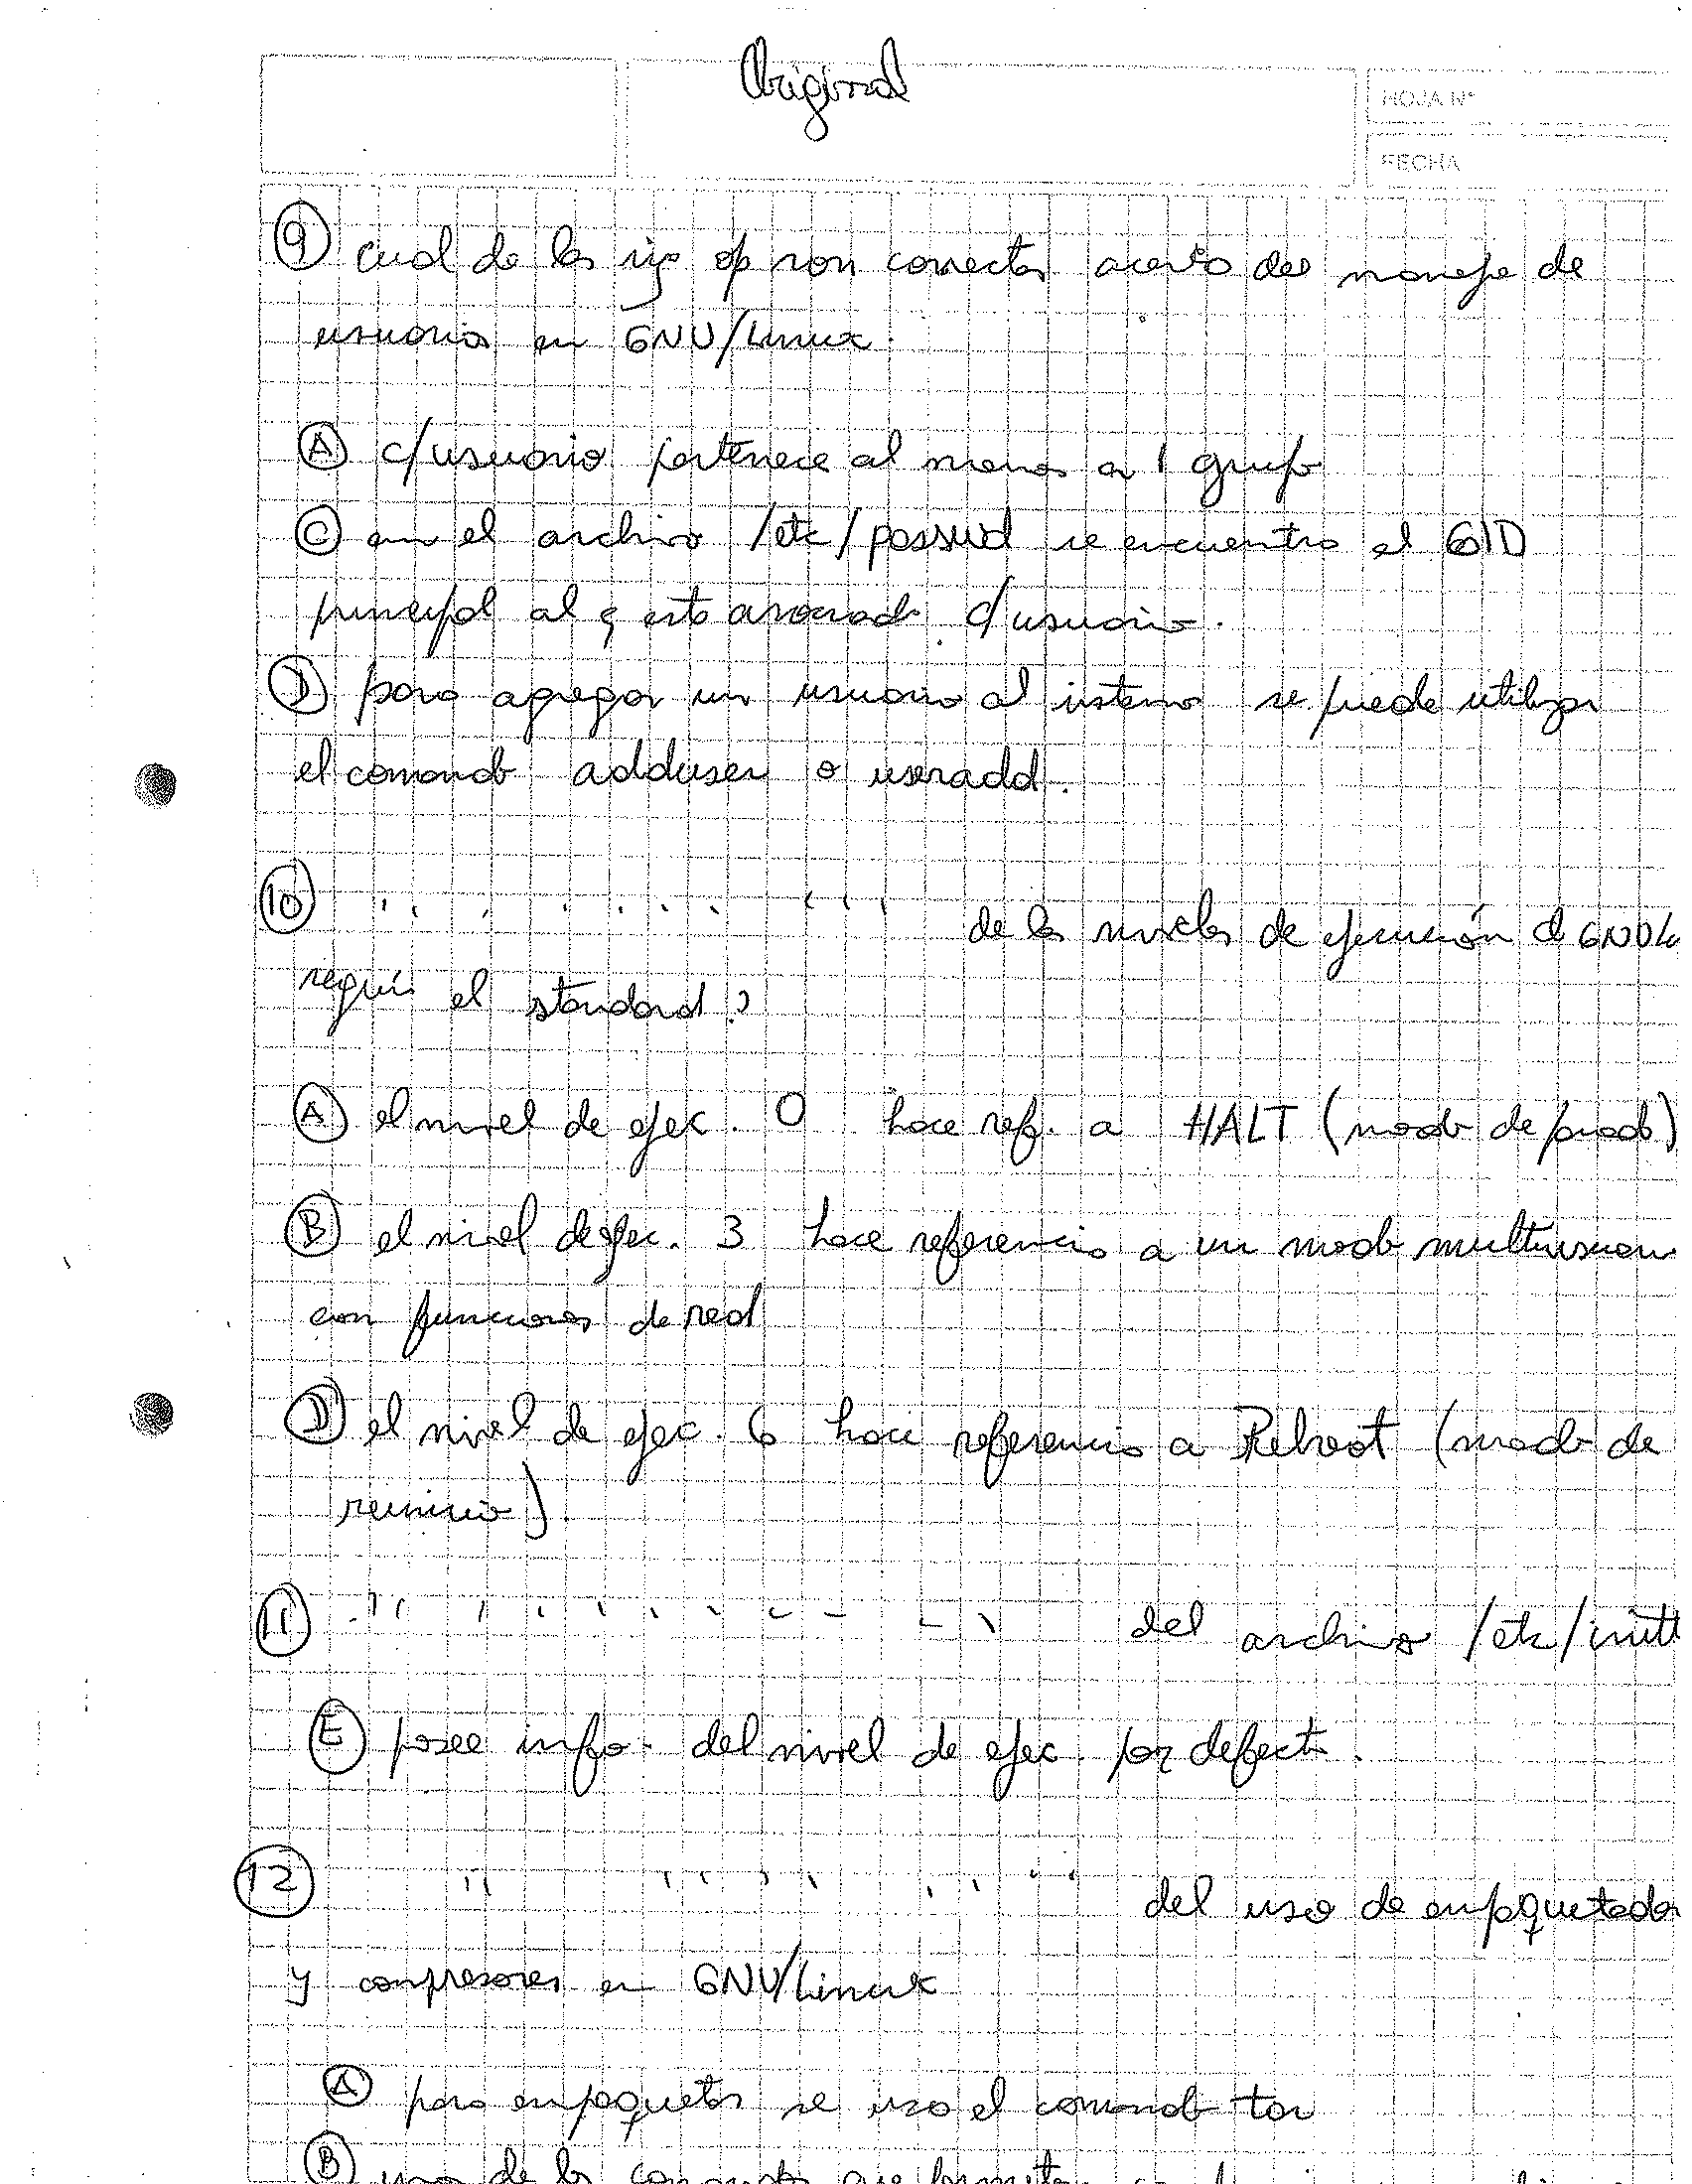 Original
HOJA Nº
FECHA
9 Cual de las sig op son correctas acerca del manejo de
usuarios en GNU/Linux.
A c/usuario pertenece al menos a 1 grupo
C en el archivo /etc/passwd se encuentra el GID
principal al q esta asociado c/usuario.
D para agregar un usuario al sistema se puede utilizar
el comando adduser o useradd.
10 " " " de los niveles de ejecución d GNU/L
según el standard?
A el nivel de ejec. 0 hace ref. a HALT (modo de parada)
B el nivel de ejec. 3 hace referencia a un modo multiusuario
con funciones de red
D el nivel de ejec. 6 hace referencia a Reboot (modo de
reinicio).
11 " " " del archivo /etc/initt
E posee info. del nivel de ejec. por defecto.
12 " " " del uso de empaquetador
y compresores en GNU/Linux
A para empaquetar se usa el comando tar
B uno de los comandos que permite